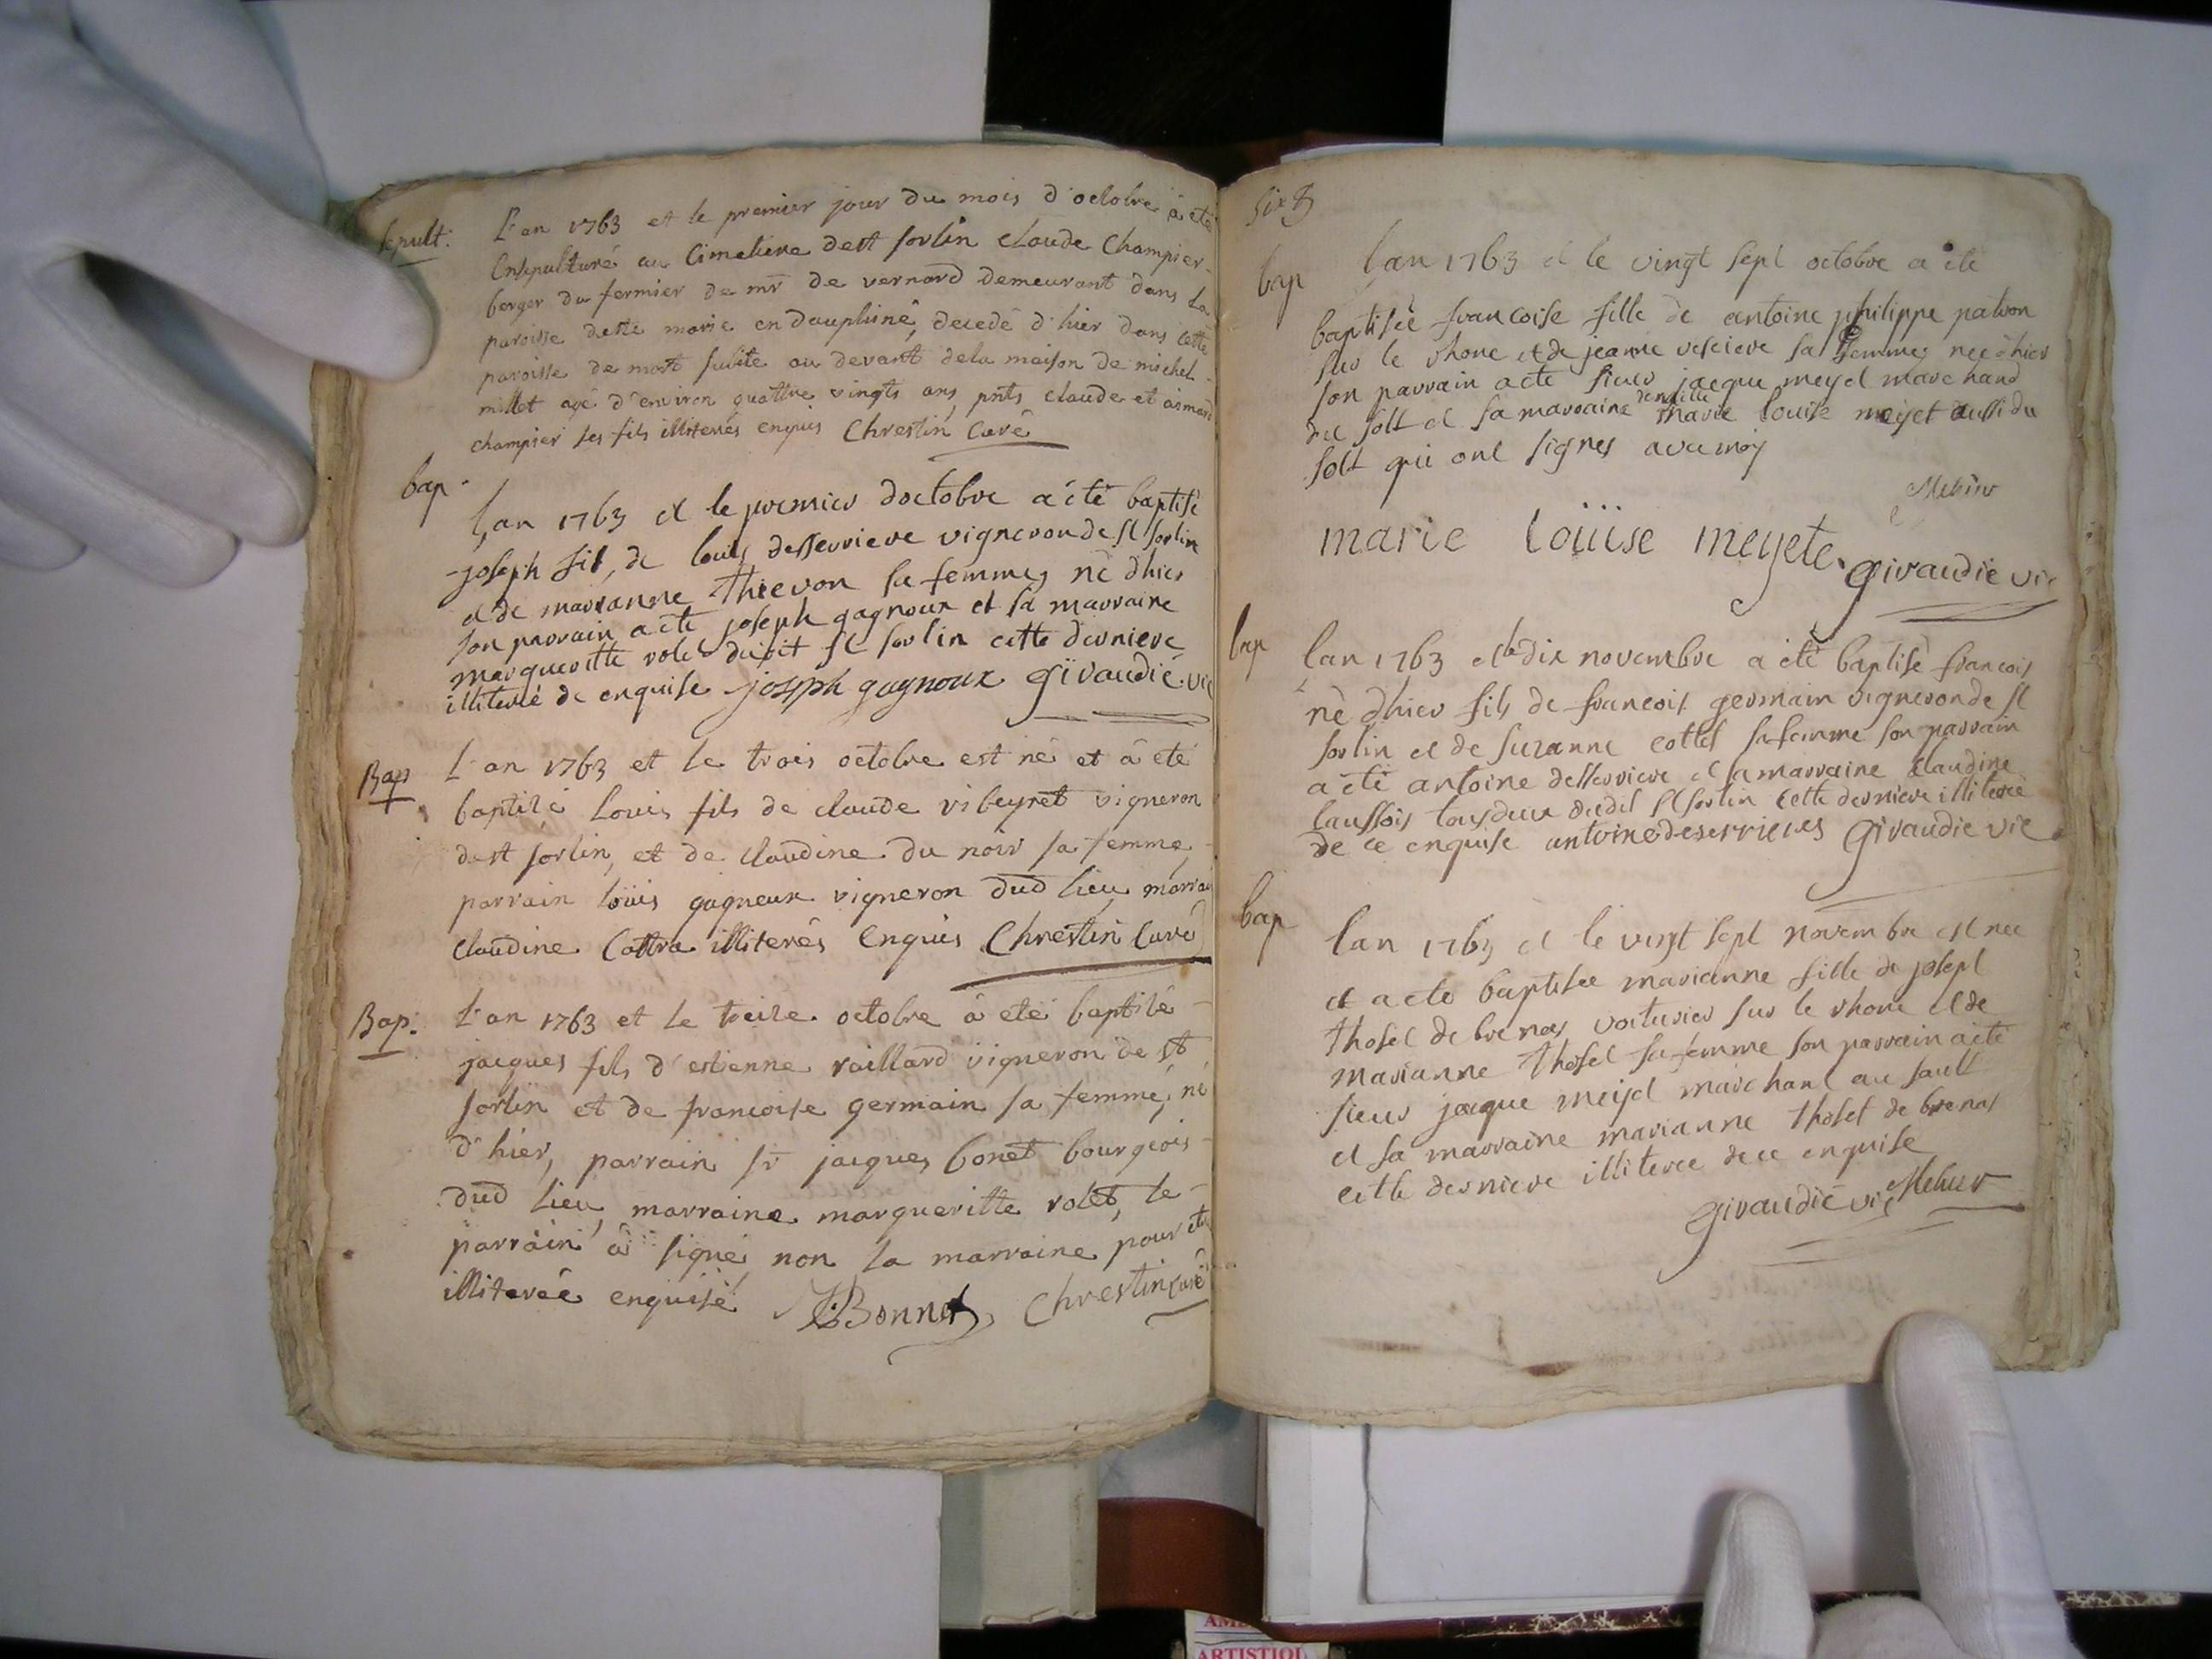 sepult:
L'an 1763 et le premier jour du mois d'octobre à eté
Ensepulturé au Cimetiere dest sorlin claude Champier
berger du fermier de mr de vernard demeurant dans la
paroisse deste marie en dauphiné, decedé d'hier dans cette
paroisse de mort subite au devant dela maison de michel
millet agé d'environ quattre vingts ans, pnts claude et
champier ses fils illiterés enquis Chrestin Curé
bap
Lan 1763 et le premier doctobre a été baptisé
joseph fils de louis desserriere vigneron de st sorlin
et de marianne thievon sa femme, né dhier
son parrain a eté joseph gagnoux et sa marraine
margueritte rolet dudit st sorlin cette derniere
illiterée de enquise joseph gagnoux Givaudié vic
Bap
L'an 1763 et le trois octobre est né et à eté
baptisé Louis fils de claude vibeyret vigneron
dest sorlin, et de claudine du noir sa femme
parrain loüis gagneux vigneron dud lieu, marrai
claudine Cottra illiterés Enquis Chrestin Curé
Bap:
L'an 1763 et le treize octobre à eté baptisé
jacques fils d'estienne raillard vigneron de st
sorlin et de francoise germain sa femme, né
d'hier, parrain sr jacques bonet bourgeois
dud lieu, marraine margueritte rolet, le
parrain à signé non la marraine pour etr
illiterée enquise JBonnet Chrestin curé
six
bap
Lan 1763 et le vingt sept octobre a été
baptisée francoise fille de antoine philippe patron
sur le rhone et de jeanne sa femme, née dhier
son parrain a eté sieur jacque meyet marchand
du solt et sa marraine demlle marie louise meyet aussi du
solt qui ont signes avec moy
marie loüise meyete Givaudié vic
bap
Lan 1763 et le dix novembre a été baptisé francois
né dhier fils de francois germain vigneron de st
sorlin et de suzanne cottet sa femme son parrain
a été antoine desserriere et sa marraine claudine
tous deux dudit st sorlin cette derniere illiterée
de ce enquise antoine deserrieres Givaudié vic
bap
Lan 1763 et le vingt sept novembre est née
et a eté baptisée marianne fille de josept
thoset de brenas voiturier sur le rhone et de
marianne thoset sa femme son parrain a eté
sieur jacque meyet marchant au sault
et sa marraine marianne thoset de brenas
cette derniere illiterée de ce enquise
Givaudié vic
ARTISTIQU